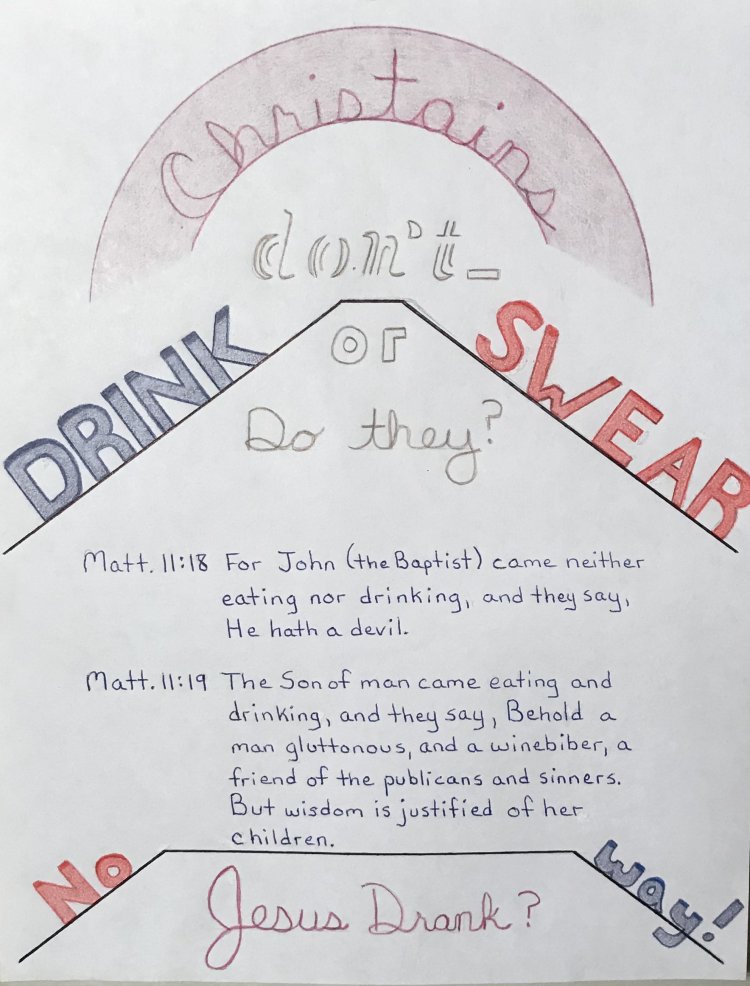 Christains
don't_
DRINK or SWEAR
Do they?
Matt. 11:18 For John (the Baptist) came neither
eating nor drinking, and they say,
He hath a devil.
Matt. 11:19 The Son of man came eating and
drinking, and they say, Behold a
man gluttonous, and a winebiber, a
friend of the publicans and sinners.
But wisdom is justified of her
children.
No way!
Jesus Drank?